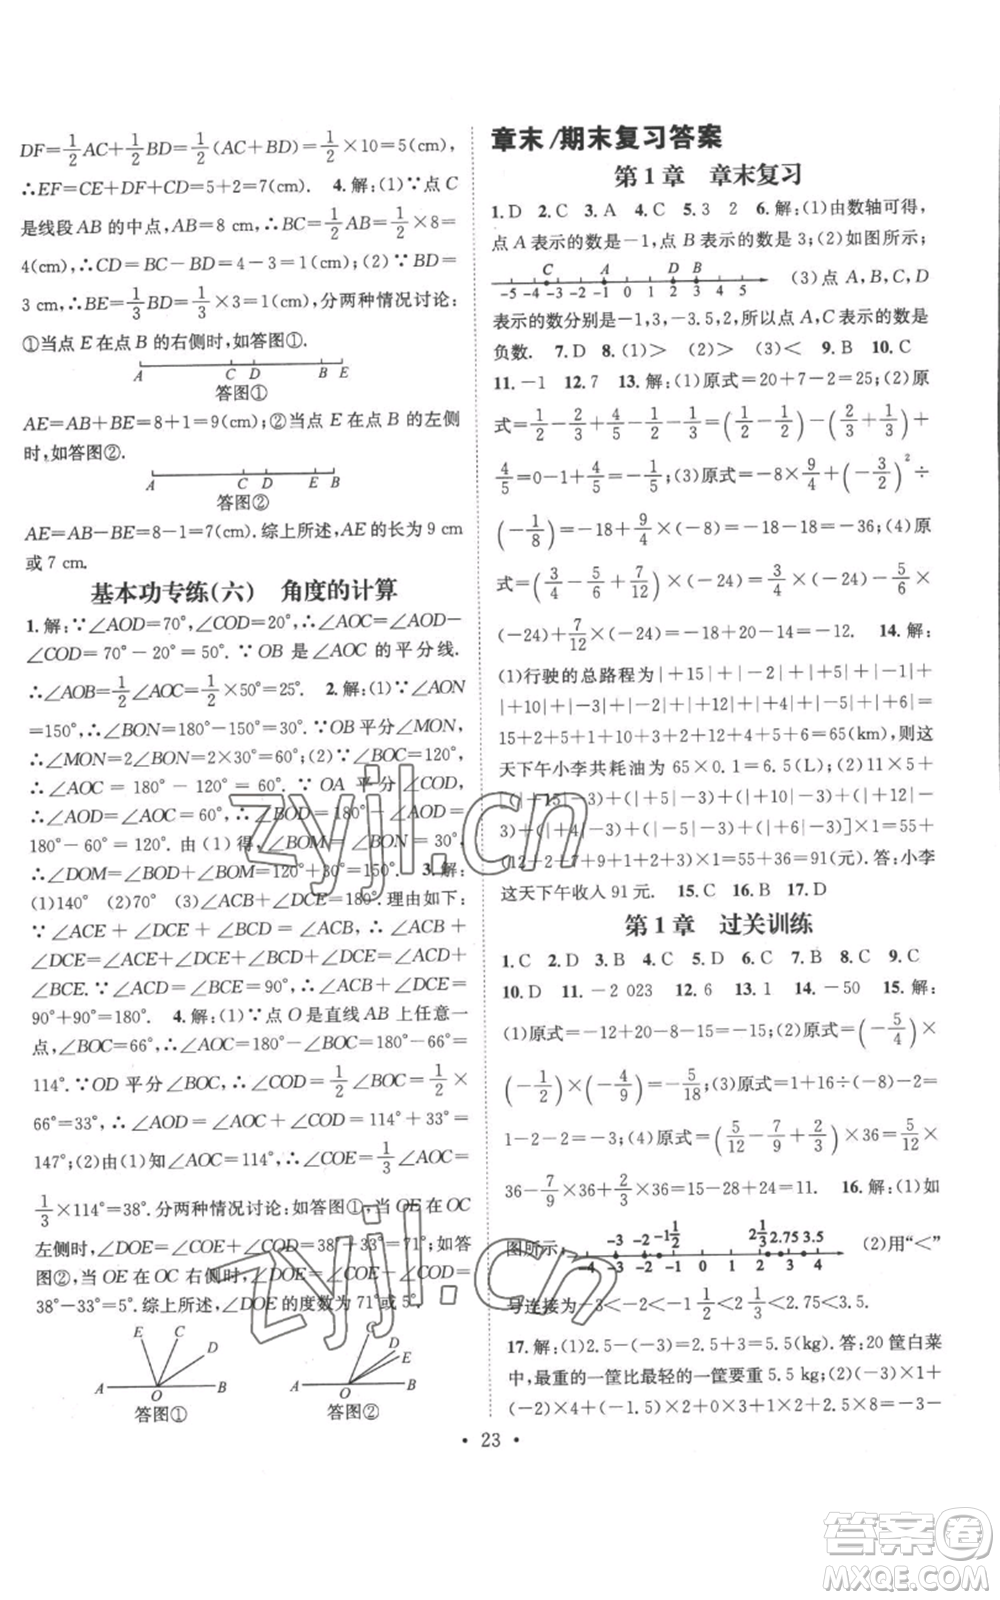 DF=1/2AC+1/2BD=1/2(AC+BD)=1/2×10=5(cm),
∴EF=CE+DF+CD=5+2=7(cm). 4.解:(1)∵点 C
是线段 AB 的中点,AB=8 cm,∴BC=1/2AB=1/2×8=
4(cm);∴CD=BC-BD=4-3=1(cm);(2)∵BD=
3 cm,∴BE=1/3BD=1/3×3=1(cm),分两种情况讨论:
①当点 E 在点 B 的右侧时,如答图①.
A C D B E
答图①
AE=AB+BE=8+1=9(cm);②当点 E 在点 B 的左侧
时,如答图②.
A C D E B
答图②
AE=AB-BE=8-1=7(cm).综上所述,AE 的长为 9 cm
或 7 cm.
基本功专练(六) 角度的计算
1.解:∵∠AOD=70°,∠COD=20°,∴∠AOC=∠AOD-
∠COD=70°-20°=50°.∵OB 是∠AOC 的平分线.
∴∠AOB=1/2∠AOC=1/2×50°=25°. 2.解:(1)∵∠AON
=150°,∴∠BON=180°-150°=30°.∵OB 平分∠MON,
∴∠MON=2∠BON=2×30°=60°;(2)∵∠BOC=120°,
∴∠AOC=180°-120°=60°.∵OA 平分∠COD,
∴∠AOD=∠AOC=60°,∴∠BOD=180°-∠AOD=
180°-60°=120°.由(1)得,∠BOM=∠MON=30°,
∴∠DOM=∠BOD+∠BOM=120°+30°=150°. 3.解:
(1)140° (2)30° (3)∠ACB+∠DCE=180°.理由如下:
∵∠ACE+∠DCE+∠BCD=∠ACB,∴∠ACB+
∠DCE=∠ACE+∠DCE+∠BCD+∠DCE=∠ACD+
∠BCE.∵∠ACD=∠BCE=90°,∴∠ACB+∠DCE=
90°+90°=180°. 4.解:(1)∵点 O 是直线 AB 上任意一
点,∠BOC=66°,∴∠AOC=180°-∠BOC=180°-66°=
114°.∵OD 平分∠BOC,∴∠COD=1/2∠BOC=1/2×
66°=33°,∴∠AOD=∠AOC+∠COD=114°+33°=
147°;(2)由(1)知∠AOC=114°,∴∠COE=1/3∠AOC=
1/3×114°=38°.分两种情况讨论:如答图①,当 OE 在 OC
左侧时,∠DOE=∠COE+∠COD=38°+33°=71°;如答
图②,当 OE 在 OC 右侧时,∠DOE=∠COE-∠COD=
38°-33°=5°.综上所述,∠DOE 的度数为 71°或 5°.
E C D A O B
答图①
C D E A O B
答图②
章末/期末复习答案
第 1 章 章末复习
1.D 2.C 3.A 4.C 5.3 2 6.解:(1)由数轴可得,
点 A 表示的数是-1,点 B 表示的数是 3;(2)如图所示;
C A D B
-5 -4 -3 -2 -1 0 1 2 3 4 5
(3)点 A,B,C,D
表示的数分别是-1,3,-3.5,2,所以点 A,C 表示的数是
负数. 7.D 8.(1)> (2)> (3)< 9.B 10.C
11.-1 12.7 13.解:(1)原式=20+7-2=25;(2)原
式=1/2-2/3+4/5-1/2-1/3=(1/2-1/2)-(2/3+1/3)+
4/5=0-1+4/5=-1/5;(3)原式=-8×9/4+(-3/2)²÷
(-1/8)=-18+9/4×(-8)=-18-18=-36;(4)原
式=(3/4-5/6+7/12)×(-24)=3/4×(-24)-5/6×
(-24)+7/12×(-24)=-18+20-14=-12. 14.解:
(1)行驶的总路程为|+15|+|-2|+|+5|+|-1|+
|+10|+|-3|+|-2|+|+12|+|+4|+|-5|+|+6|=
15+2+5+1+10+3+2+12+4+5+6=65(km),则这
天下午小李共耗油为 65×0.1=6.5(L);(2)11×5+
1×[(15-3)+(|+5|-3)+(|+10|-3)+(|+12|-
3)+(|+4|-3)+(|-5|-3)+(|+6|-3)]×1=55+
(12+2+7+9+1+2+3)×1=55+36=91(元).答:小李
这天下午收入 91 元. 15.C 16.B 17.D
第 1 章 过关训练
1.C 2.D 3.B 4.C 5.C 6.D 7.B 8.C 9.C
10.D 11.-2 023 12.6 13.1 14.-50 15.解:
(1)原式=-12+20-8-15=-15;(2)原式=(-5/4)×
(-1/2)×(-4/9)=-5/18;(3)原式=1+16÷(-8)-2=
1-2-2=-3;(4)原式=(5/12-7/9+2/3)×36=5/12×
36-7/9×36+2/3×36=15-28+24=11. 16.解:(1)如
图所示:
-3 -2 -1 1/2 2 1/3 2.75 3.5
-4 -3 -2 -1 0 1 2 3 4
(2)用“<”
号连接为-3<-2<-1 1/2<2 1/3<2.75<3.5.
17.解:(1)2.5-(-3)=2.5+3=5.5(kg).答:20 筐白菜
中,最重的一筐比最轻的一筐要重 5.5 kg;(2)(-3)×1+
(-2)×4+(-1.5)×2+0×3+1×2+2.5×8=-3-8-
• 23 •
zyjl.cn
zyjl.cn
答案圈
MXQE.COM